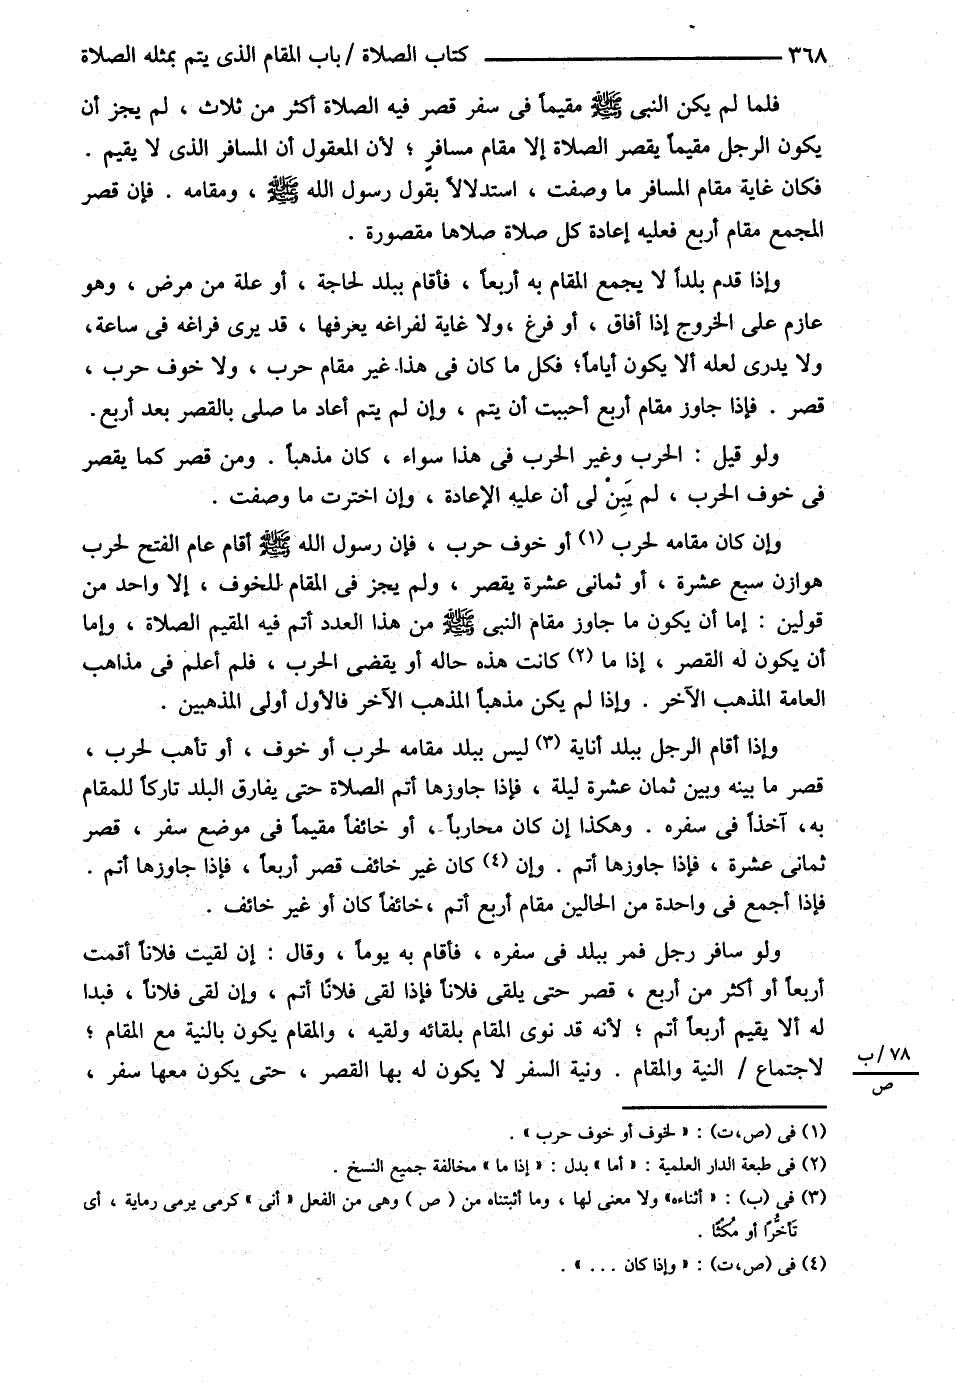 ٣٦٨ كتاب الصلاة / باب المقام الذى يتم بمثله الصلاة
فلما لم يكن النبى ﷺ مقيماً فى سفر قصر فيه الصلاة أكثر من ثلاث ، لم يجز أن
يكون الرجل مقيماً يقصر الصلاة إلا مقام مسافرٍ ؛ لأن المعقول أن المسافر الذى لا يقيم .
فكان غاية مقام المسافر ما وصفت ، استدلالاً بقول رسول الله ﷺ ، ومقامه . فإن قصر
المجمع مقام أربع فعليه إعادة كل صلاة صلاها مقصورة .
وإذا قدم بلداً لا يجمع المقام به أربعاً ، فأقام ببلد لحاجة ، أو علة من مرض ، وهو
عازم على الخروج إذا أفاق ، أو فرغ ،ولا غاية لفراغه يعرفها ، قد يرى فراغه فى ساعة،
ولا يدرى لعله ألا يكون أياماً؛ فكل ما كان فى هذا غير مقام حرب ، ولا خوف حرب ،
قصر . فإذا جاوز مقام أربع أحببت أن يتم ، وإن لم يتم أعاد ما صلى بالقصر بعد أربع.
ولو قيل : الحرب وغير الحرب فى هذا سواء ، كان مذهباً . ومن قصر كما يقصر
فى خوف الحرب ، لم يَبِنْ لى أن عليه الإعادة ، وإن اخترت ما وصفت .
وإن كان مقامه لحرب (١) أو خوف حرب ، فإن رسول الله ﷺ أقام عام الفتح لحرب
هوازن سبع عشرة ، أو ثمانى عشرة يقصر ، ولم يجز فى المقام للخوف ، إلا واحد من
قولين : إما أن يكون ما جاوز مقام النبى ﷺ من هذا العدد أتم فيه المقيم الصلاة ، وإما
أن يكون له القصر ، إذا ما (٢) كانت هذه حاله أو يقضى الحرب ، فلم أعلم فى مذاهب
العامة المذهب الآخر . وإذا لم يكن مذهباً المذهب الآخر فالأول أولى المذهبين .
وإذا أقام الرجل ببلد أناية (٣) ليس ببلد مقامه لحرب أو خوف ، أو تأهب لحرب ،
قصر ما بينه وبين ثمان عشرة ليلة ، فإذا جاوزها أتم الصلاة حتى يفارق البلد تاركاً للمقام
به، آخذاً فى سفره . وهكذا إن كان محارباً ، أو خائفاً مقيماً فى موضع سفر ، قصر
ثمانى عشرة ، فإذا جاوزها أتم . وإن (٤) كان غير خائف قصر أربعاً ، فإذا جاوزها أتم .
فإذا أجمع فى واحدة من الحالين مقام أربع أتم ،خائفاً كان أو غير خائف .
ولو سافر رجل فمر ببلد فى سفره ، فأقام به يوماً ، وقال : إن لقيت فلاناً أقمت
أربعاً أو أكثر من أربع ، قصر حتى يلقى فلاناً فإذا لقى فلانًا أتم ، وإن لقى فلاناً ، فبدا
له ألا يقيم أربعاً أتم ؛ لأنه قد نوى المقام بلقائه ولقيه ، والمقام يكون بالنية مع المقام ؛
لاجتماع / النية والمقام . ونية السفر لا يكون له بها القصر ، حتى يكون معها سفر ،
٧٨ /ب
ص
(١) فى (ص،ت) : « لخوف أو خوف حرب » .
(٢) فى طبعة الدار العلمية : « أما » بدل : « إذا ما » مخالفة جميع النسخ .
(٣) فى (ب) : « أثناءه» ولا معنى لها ، وما أثبتناه من ( ص ) وهى من الفعل « أنى » كرمى يرمى رماية ، أى
تَأخُّرًا أو مُكْثًا .
(٤) فى (ص،ت) : « وإذا كان ... » .